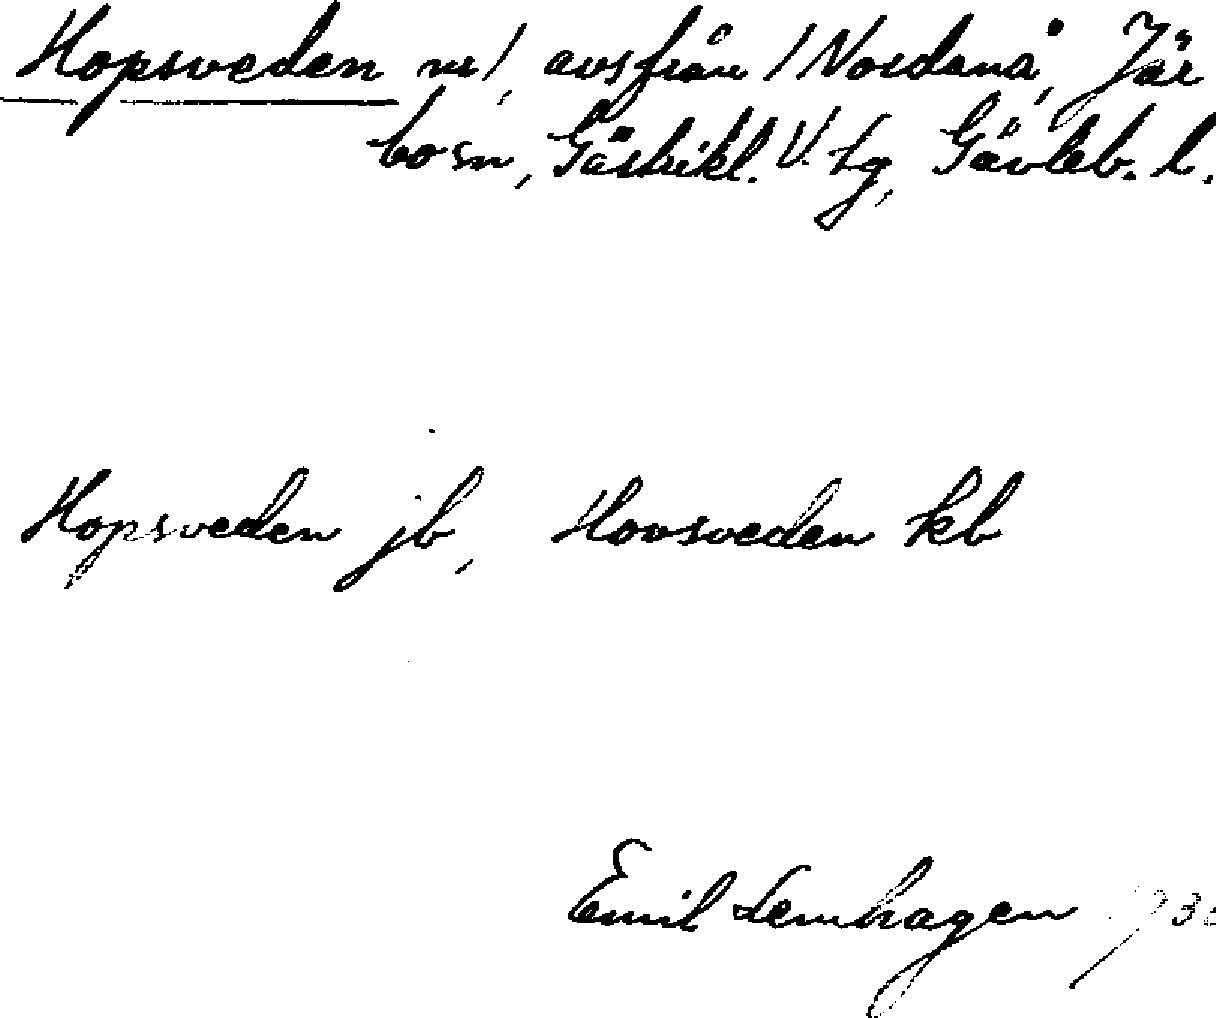 Hopsveden nr 1, avs från 1 Nordanå, Jär
bo sn, Gästrikl. V. tg, Gävleb. l.
Hopsveden jb, Hovsveden kb
Emil Lernhagen